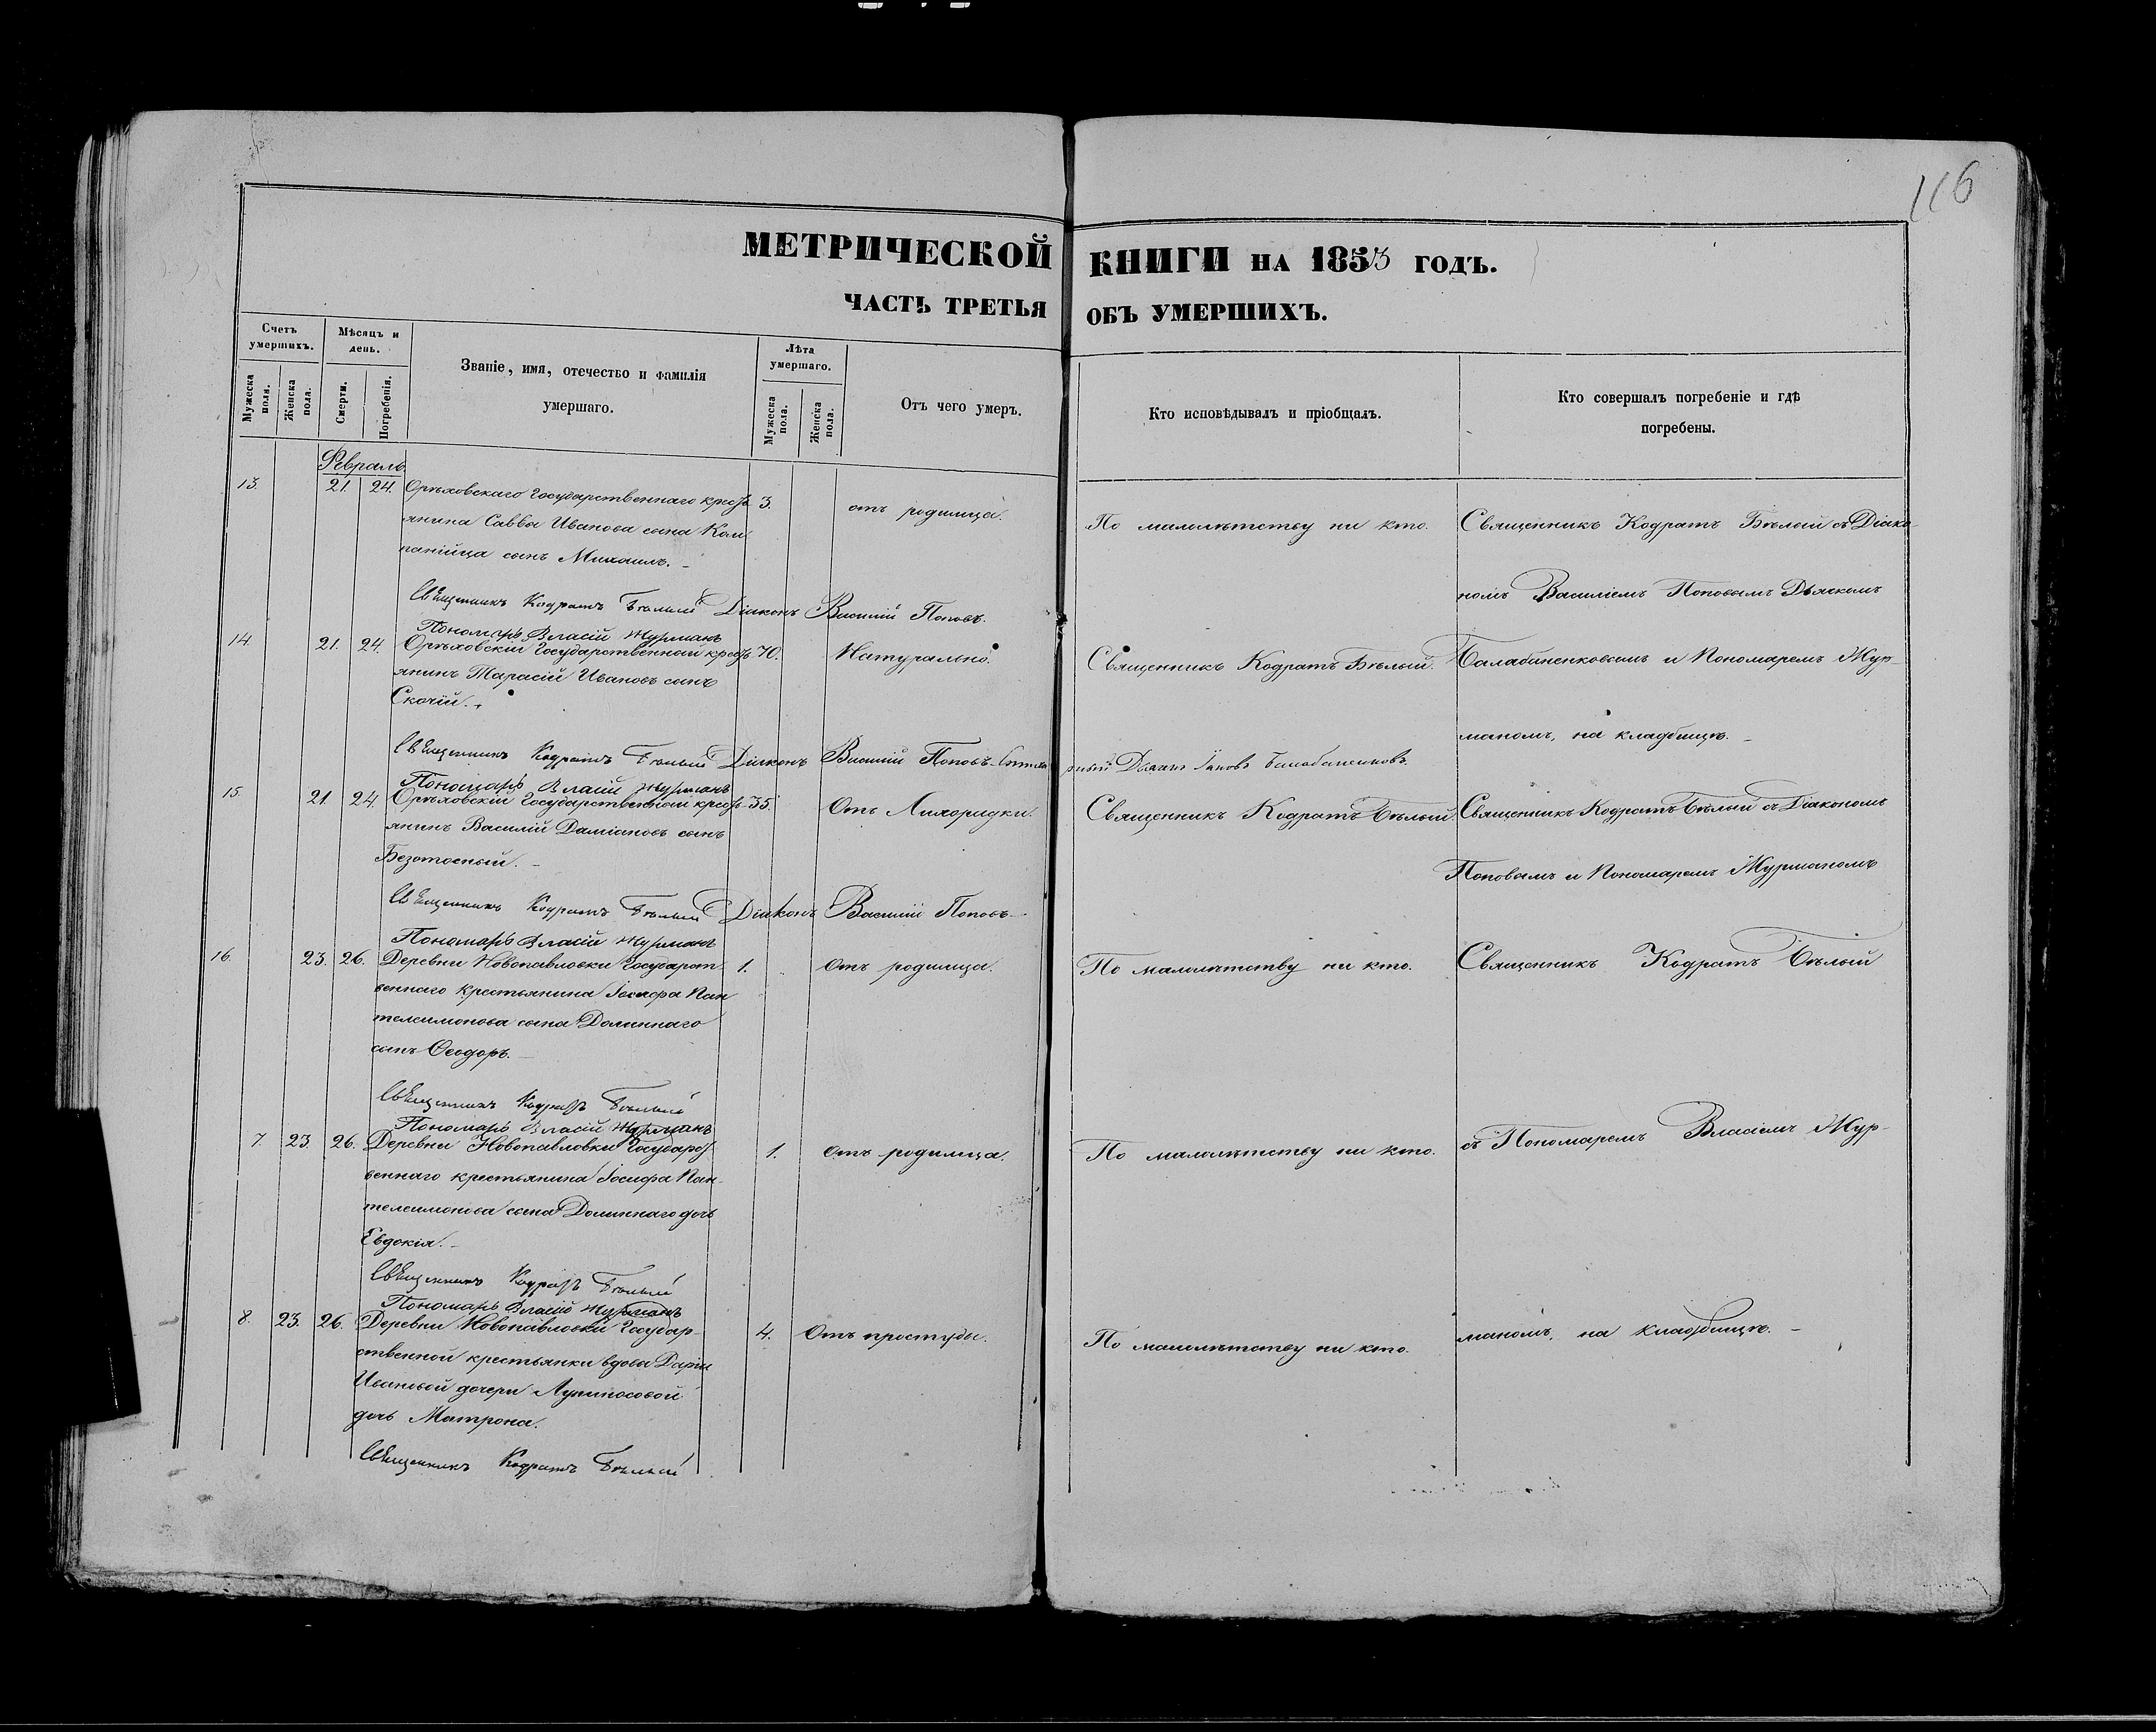 116
МЕТРИЧЕСКОЙ КНИГИ НА 1853 ГОДЪ.
ЧАСТЬ ТРЕТЬЯ ОБЪ УМЕРШИХЪ.
Счетъ умершихъ.
Мужеска пола.
Женска пола.
Мѣсяцъ и день.
Смерти.
Погребенія.
Званіе, имя, отечество и фамилія
умершаго.
Лѣта умершаго.
Мужеска пола.
Женска пола.
Отъ чего умеръ.
Кто исповѣдывалъ и пріобщалъ.
Кто совершалъ погребеніе и гдѣ
погребены.
Февраль
13. 21. 24. Орѣховскаго Государственнаго крест 3. отъ родимца. По малолѣтству ни кто. Священникъ Кодратъ Бѣлый съ Діако
янина Саввы Иванова сына Ком
панійца сынъ Михаилъ.
номъ Василіемъ Поповымъ Дьячкомъ
Священникъ Кодратъ Бѣлый Діаконъ Василій Поповъ.
Пономарь Власій Журманъ
14. 21. 24. Орѣховскій Государственный крест 70. Натурально. Священникъ Кодратъ Бѣлый. Балабаненковымъ и Пономаремъ Жур-
янинъ Тарасій Ивановъ сынъ
Скочій.
маномъ, на кладбищѣ.
Священникъ Кодратъ Бѣлый Діаконъ Василій Поповъ Дьячекъ Іаковъ Балабаненковъ.
Пономарь Власій Журманъ
15. 21. 24. Орѣховскій Государственный крест 35. Отъ Лихорадки. Священникъ Кодратъ Бѣлый. Священникъ Кодратъ Бѣлый съ Діакономъ
янинъ Василій Даміановъ сынъ
Безотосный.
Поповымъ и Пономаремъ Журманомъ
Священникъ Кодратъ Бѣлый Діаконъ Василій Поповъ
Пономарь Власій Журманъ
16. 23. 26. Деревни Новопавловки Государст 1. Отъ родимца. По малолѣтству ни кто. Священникъ Кодратъ Бѣлый
веннаго крестьянина Іосифа Пан
телеимонова сына Долиннаго
сынъ Ѳеодоръ.
Священникъ Кодратъ Бѣлый
Пономарь Власій Журманъ
7. 23 26. Деревни Новопавловки Государст 1. Отъ родимца. По малолѣтству ни кто. съ Пономаремъ Власіемъ Жур-
веннаго крестьянина Іосифа Пан-
телеимонова сына Долиннаго дочь
Евдокія.
Священникъ Кодратъ Бѣлый
Пономарь Власій Журманъ
8. 23. 26. Деревни Новопавловки Государ- 4. Отъ простуды. По малолѣтству ни кто. маномъ, на кладбищѣ.
ственной крестьянки вдовы Даріи
Ивановой дочери
дочь Матрона.
Священникъ Кодратъ Бѣлый